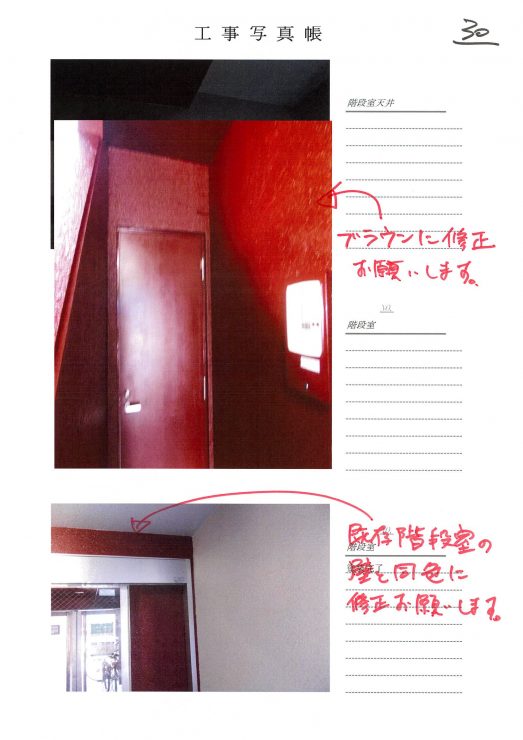 工事写真帳
30
階段室天井
ブラウンに修正
お願いします。
階段室
既存階段室の
階段室
壁と同色に
修正お願いします。